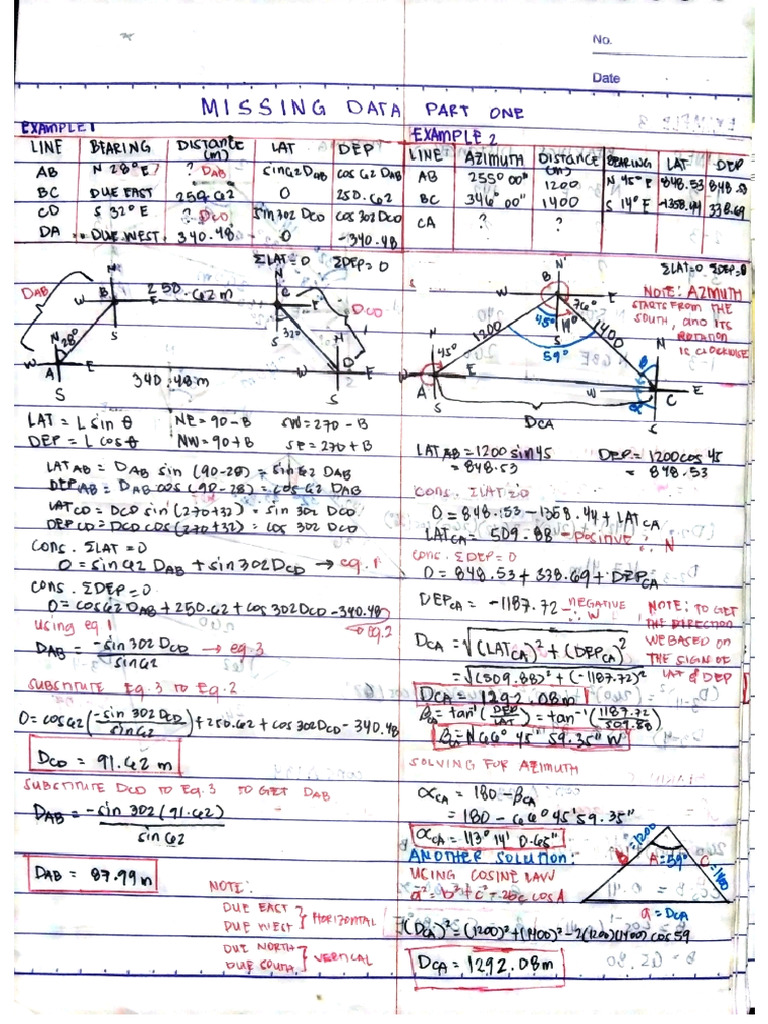 No.
Date
MISSING DATA PART ONE
EXAMPLE 1
LINE BEARING DISTANCE (m) LAT DEP
AB N 28° E ? DAB sin62DAB cos 62 DAB
BC DUE EAST 250.62 0 250.62
CD S 32° E ? DCD sin 302 DCD cos 302 DCD
DA DUE WEST 340.48 0 -340.48
ΣLAT=0 ΣDEP=0
DAB
250.62 m
N
B
W
E
S
28°
N
C
E
S
32°
DCD
N
W
A
E
S
D
E
S
340.48 m
LAT = L sin θ NE = 90 - B SW = 270 - B
DEP = L cos θ NW = 90 + B SE = 270 + B
LAT AB = DAB sin (90-28) = sin 62 DAB
DEP AB = DAB cos (90-28) = cos 62 DAB
LAT CD = DCD sin (270+32) = sin 302 DCD
DEP CD = DCD cos (270+32) = cos 302 DCD
CONS. ΣLAT = 0
0 = sin 62 DAB + sin 302 DCD → eq. 1
CONS. ΣDEP = 0
0 = cos 62 DAB + 250.62 + cos 302 DCD - 340.48
→ eq.2
using eq 1
DAB = -sin 302 DCD / sin 62 → eq 3
SUBSTITUTE Eq. 3 TO Eq. 2
0 = cos 62 (-sin 302 DCD / sin 62) + 250.62 + cos 302 DCD - 340.48
DCD = 91.62 m
SUBSTITUTE DCD TO Eq. 3 TO GET DAB
DAB = -sin 302 (91.62) / sin 62
DAB = 87.99 m
NOTE:
DUE EAST
DUE WEST } HORIZONTAL
DUE NORTH
DUE SOUTH } VERTICAL
EXAMPLE 2
LINE AZIMUTH DISTANCE (m) BEARING LAT DEP
AB 255° 00" 1200 N 45° E 848.53 848.53
BC 346° 00" 1400 S 14° E -1358.44 338.69
CA ? ?
ΣLAT=0 ΣDEP=0
NOTE: AZIMUTH
STARTS FROM THE
SOUTH, AND ITS
ROTATION
IS CLOCKWISE
N
B
W
E
76°
45° 14°
1200
1400
S
59°
N
45°
W
A
E
S
N
W
E
C
S
DCA
LAT AB = 1200 sin 45 DEP = 1200 cos 45
= 848.53 = 848.53
CONS. ΣLAT = 0
0 = 848.153 - 1358.44 + LAT CA
LAT CA = 509.88 - positive ∴ N
CONS. ΣDEP = 0
0 = 848.53 + 338.69 + DEP CA
DEP CA = -1187.72 - NEGATIVE ∴ W
NOTE: TO GET
THE DIRECTION
WE BASED ON
THE SIGN OF
LAT & DEP
DCA = √(LAT CA)² + (DEP CA)²
= √(509.88)² + (-1187.72)²
DCA = 1292.08m
β CA = tan⁻¹ (DEP / LAT) = tan⁻¹ (1187.72 / 509.88)
β CA = N 66° 45' 59.35" W
SOLVING FOR AZIMUTH
αCA = 180 - βCA
= 180 - 66° 45' 59.35"
αCA = 113° 14' 0.65"
ANOTHER SOLUTION:
USING COSINE LAW
a² = b² + c² - 2bc cos A
b = 1200
A = 59°
a = DCA
(DCA)² = (1200)² + (1400)² - 2(1200)(1400) cos 59
DCA = 1292.08m